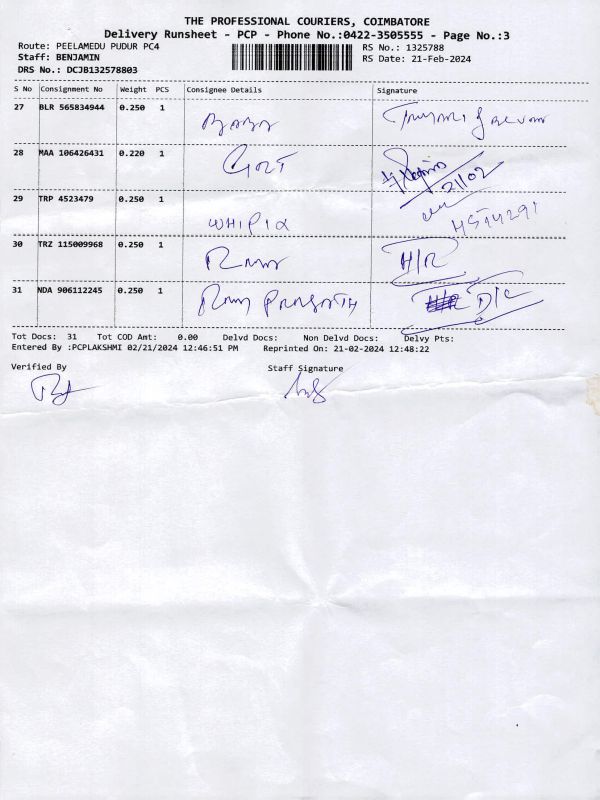 THE PROFESSIONAL COURIERS, COIMBATORE
Delivery Runsheet - PCP - Phone No.:0422-3505555 - Page No.:3
Route: PEELAMEDU PUDUR PC4 RS No.: 1325788
Staff: BENJAMIN RS Date: 21-Feb-2024
DRS No.: DCJB132578803
S No Consignment No Weight PCS Consignee Details Signature
27 BLR 565834944 0.250 1
28 MAA 106426431 0.220 1
21/02
29 TRP 4523479 0.250 1
30 TRZ 115009968 0.250 1 H/R
31 NDA 906112245 0.250 1 D/C
Tot Docs: 31 Tot COD Amt: 0.00 Delvd Docs: Non Delvd Docs: Delvy Pts:
Entered By :PCPLAKSHMI 02/21/2024 12:46:51 PM Reprinted On: 21-02-2024 12:48:22
Verified By Staff Signature